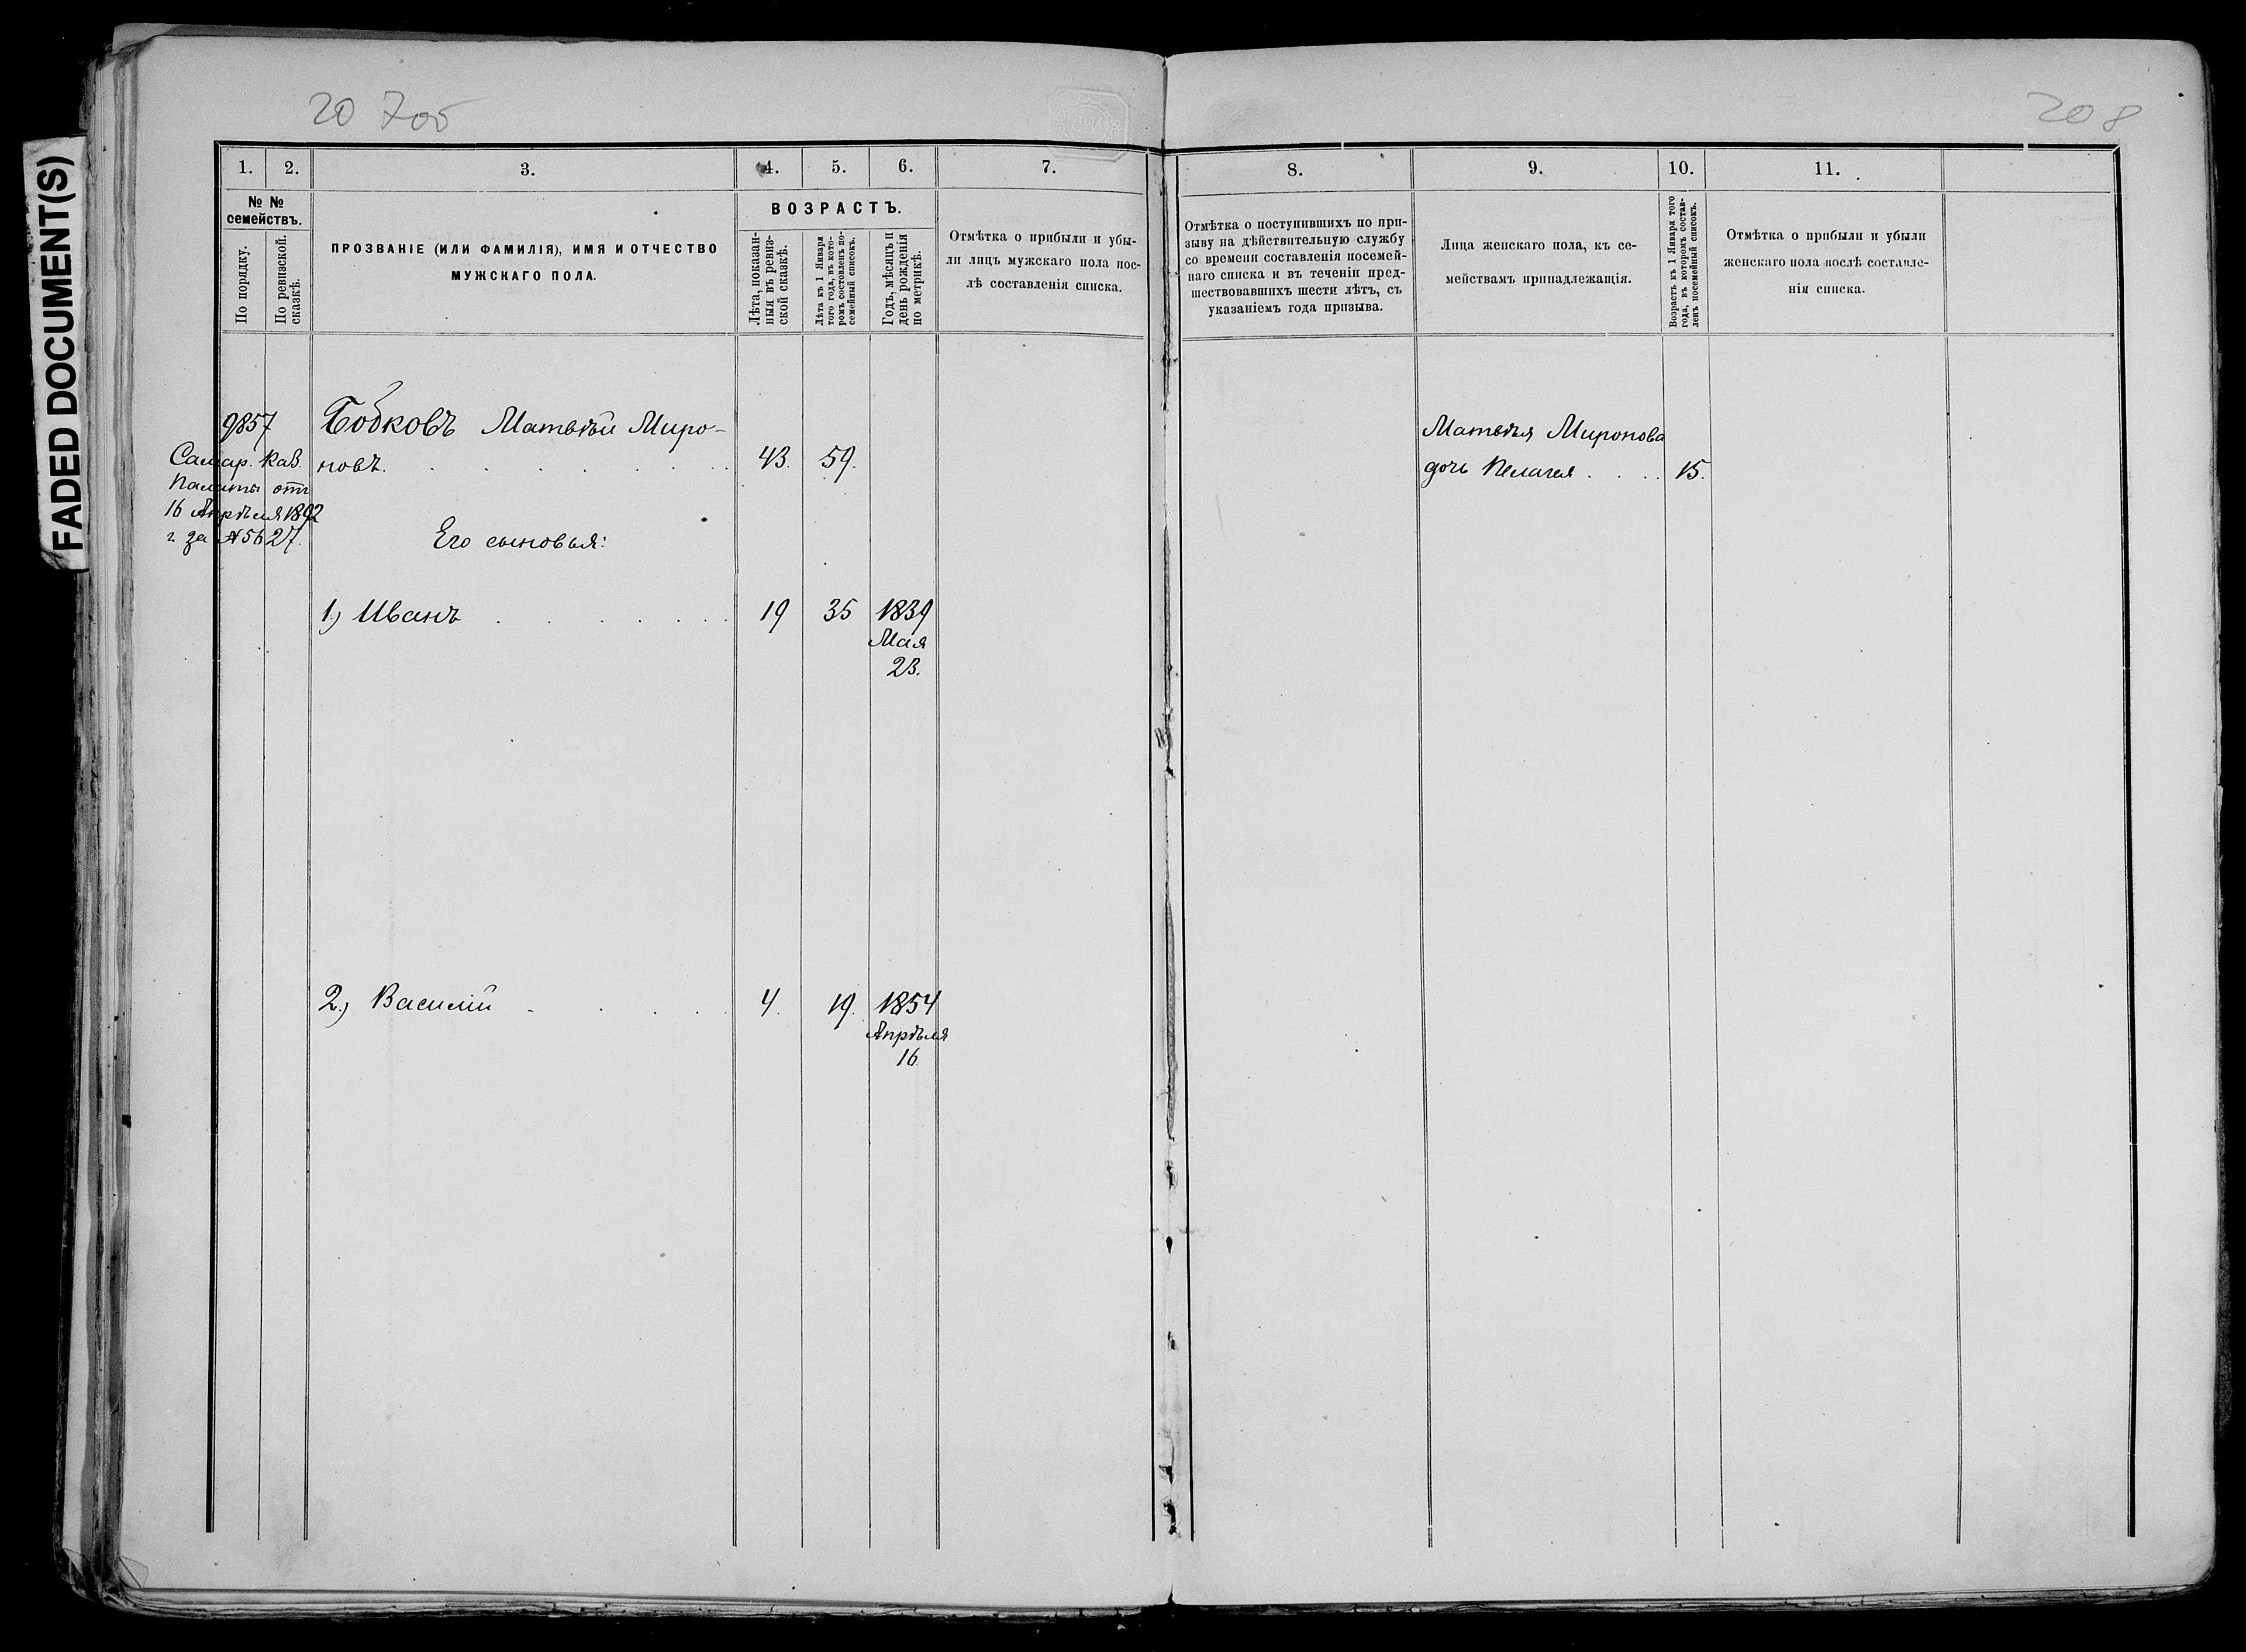 FADED DOCUMENT(S)
208
1.
2.
3.
4.
5.
6.
7.
8.
9.
10.
11.
№ №
семействъ.
По порядку.
По ревизской
сказкѣ.
ПРОЗВАНІЕ (ИЛИ ФАМИЛІЯ), ИМЯ И ОТЧЕСТВО
МУЖСКАГО ПОЛА.
ВОЗРАСТЪ.
Лѣта, показан-
ныя въ ревиз-
ской сказкѣ.
Лѣта къ 1 Января
того года, въ кото-
ромъ составленъ по-
семейный списокъ.
Годъ, мѣсяцъ и
день рожденія
по метрикѣ.
Отмѣтка о прибыли и убы-
ли лицъ мужскаго пола пос-
лѣ составленія списка.
Отмѣтка о поступившихъ по при-
зыву на дѣйствительную службу
со времени составленія посемей-
наго списка и въ теченіи пред-
шествовавшихъ шести лѣтъ, съ
указаніемъ года призыва.
Лица женскаго пола, къ се-
мействамъ принадлежащія.
Возрастъ къ 1 Января того
года, въ которомъ состав-
ленъ посемейный списокъ.
Отмѣтка о прибыли и убыли
женскаго пола послѣ составле-
нія списка.
9857
Самар. Каз.
Палаты отъ
16 Апрѣля 1892
г. за № 5627.
Бобковъ Матвѣй Миро-
новъ. 43. 59.
Его сыновья:
1.) Иванъ 19 35 1839
Мая
23.
2.) Василій 4. 19. 1854
Апрѣля
16.
Матвѣя Миронова
дочь Пелагея 15.